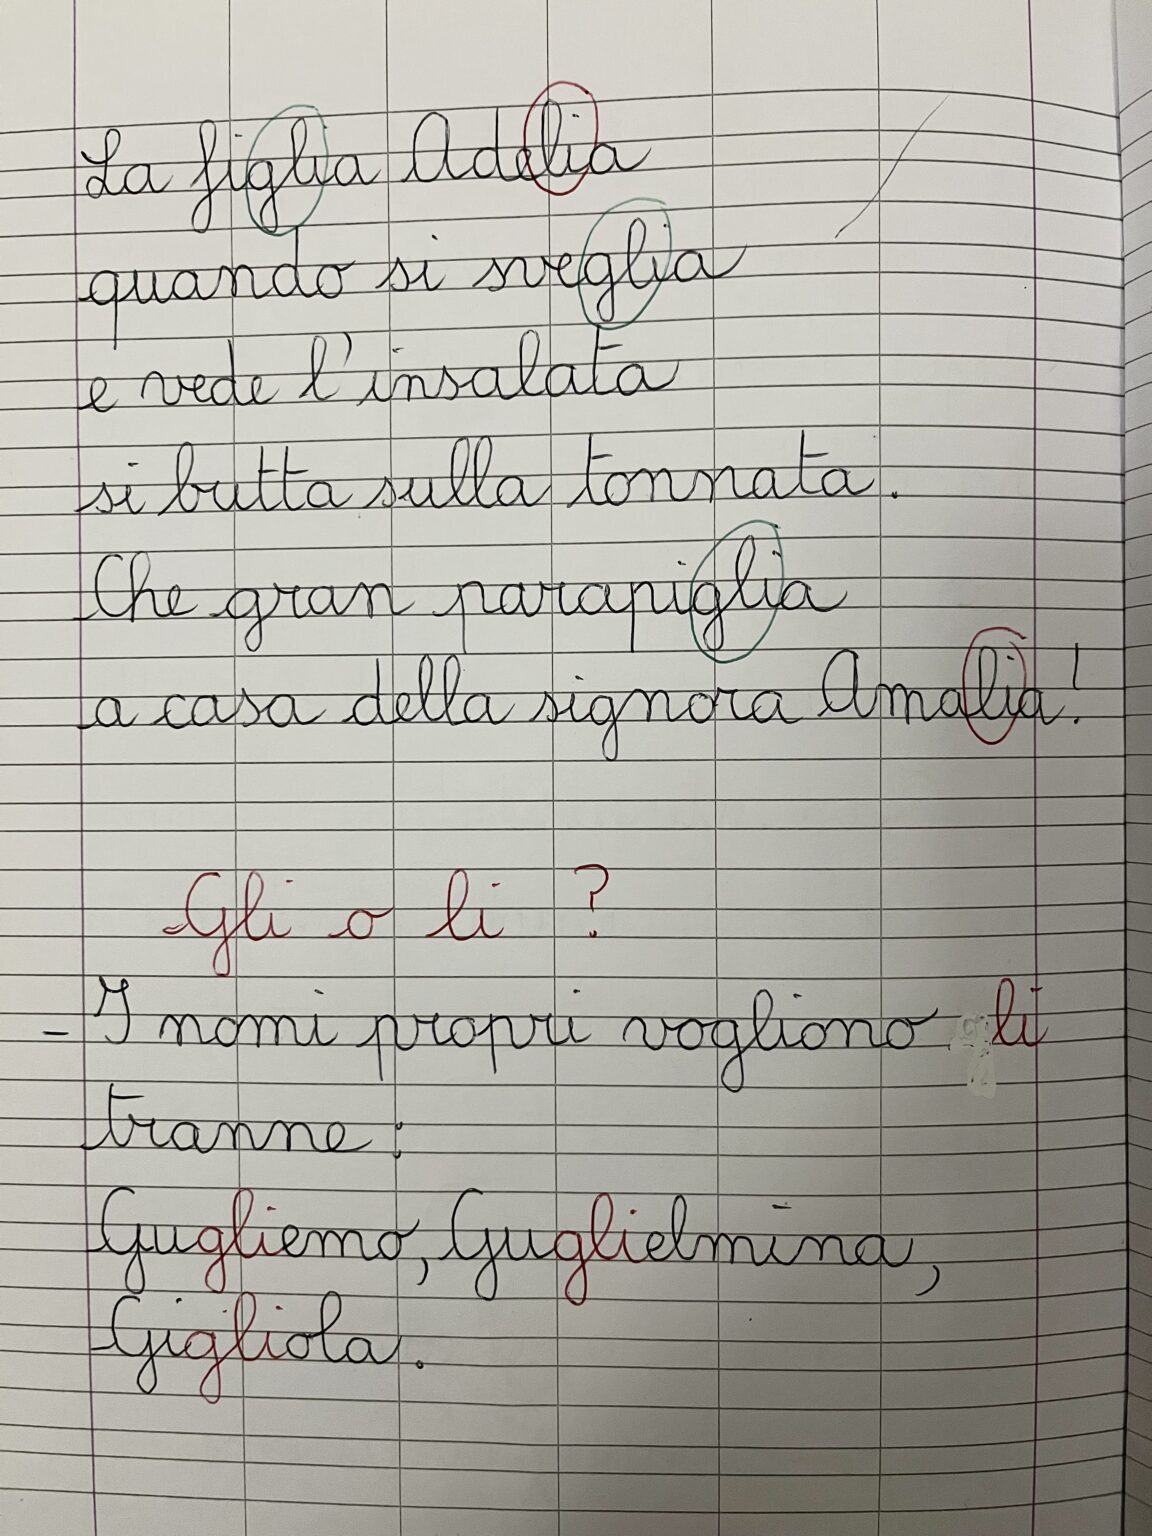 La figlia Adelia
quando si sveglia
e vede l'insalata
si butta sulla tonnata.
Che gran parapiglia
a casa della signora Amalia!
Gli o li ?
- I nomi propri vogliono li
tranne :
Gugliemo, Guglielmina,
Gigliola.